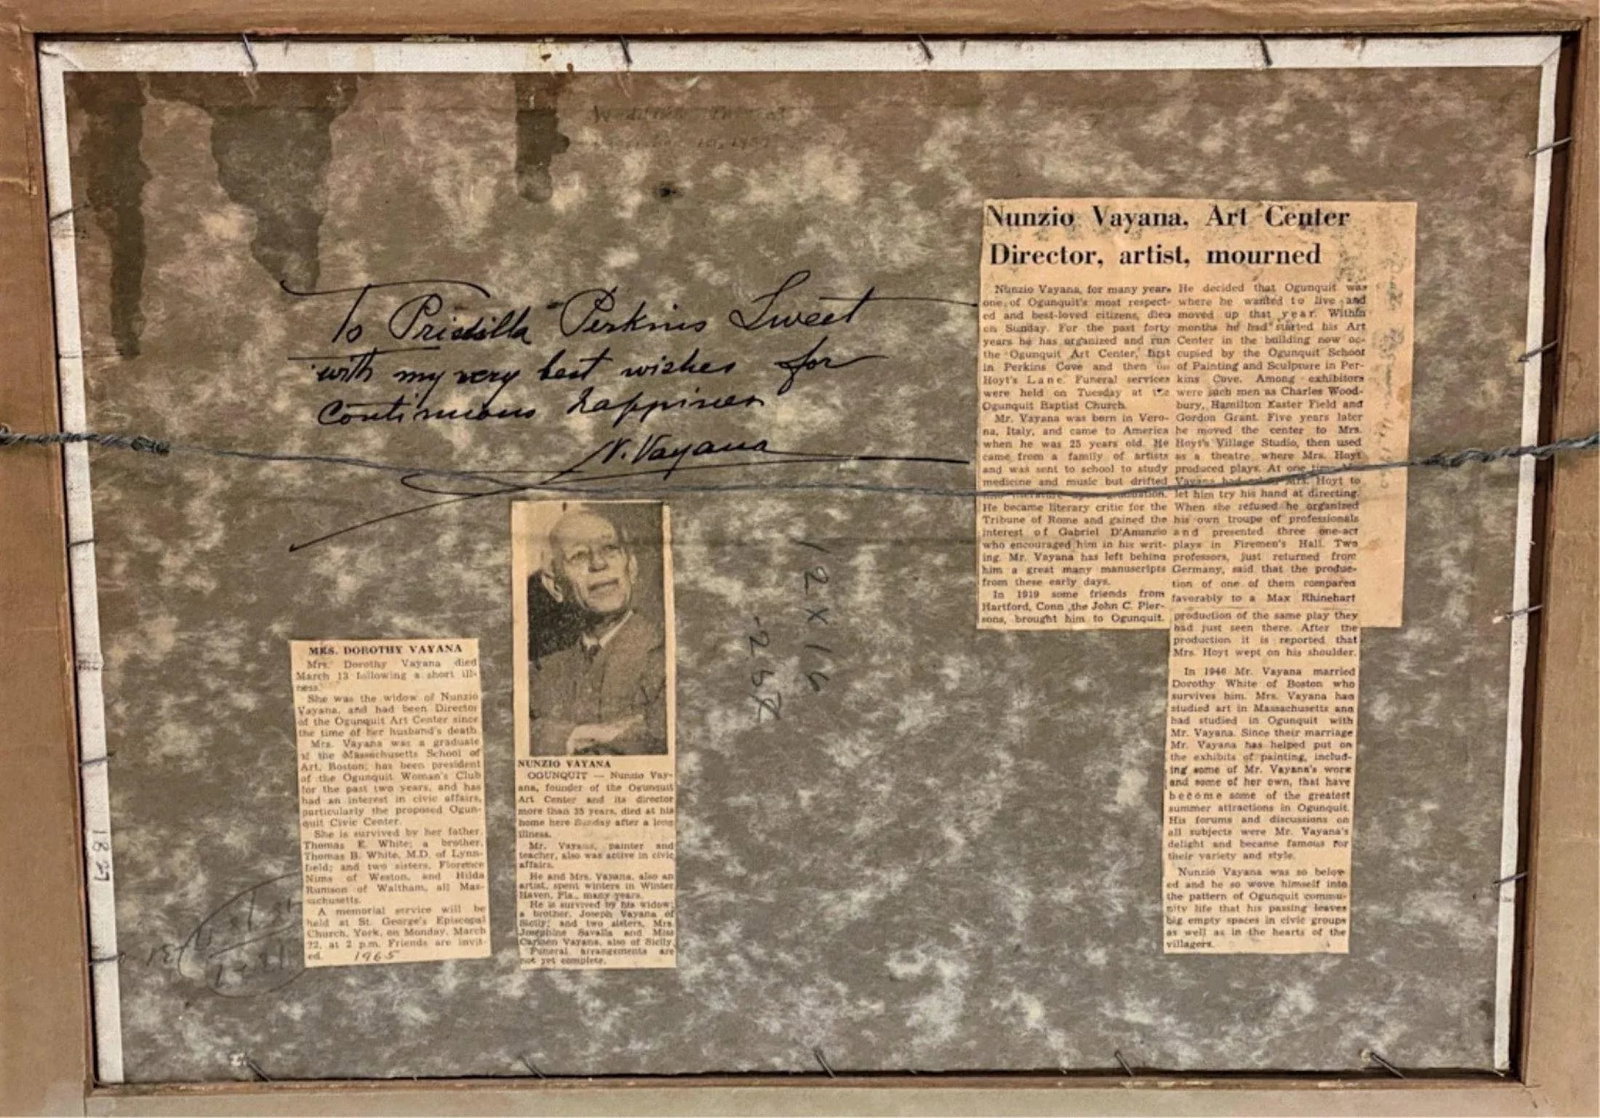 To Priscilla Perkins Sweet
with my very best wishes for
continuous happiness
N. Vayana
12 X 16
1827
Nunzio Vayana, Art Center
Director, artist, mourned
Nunzio Vayana, for many years
one of Ogunquit's most respect-
ed and best-loved citizens, died
on Sunday. For the past forty
years he has organized and run
the Ogunquit Art Center, first
in Perkins Cove and then on
Hoyt's Lane. Funeral services
were held on Tuesday at the
Ogunquit Baptist Church.
Mr. Vayana was born in Vero-
na, Italy, and came to America
when he was 25 years old. He
came from a family of artists
and was sent to school to study
medicine and music but drifted
He became literary critic for the
Tribune of Rome and gained the
interest of Gabriel D'Anunzio
who encouraged him in his writ-
ing. Mr. Vayana has left behind
him a great many manuscripts
from these early days.
In 1919 some friends from
Hartford, Conn ,the John C. Pier-
sons, brought him to Ogunquit.
He decided that Ogunquit was
where he wanted to live and
moved up that year. Within
months he had started his Art
Center in the building now oc-
cupied by the Ogunquit School
of Painting and Sculpture in Per-
kins Cove. Among exhibitors
were such men as Charles Wood-
bury, Hamilton Easter Field and
Gordon Grant. Five years later
he moved the center to Mrs.
Hoyt's Village Studio, then used
as a theatre where Mrs. Hoyt
produced plays. At one time
Vayana had Mrs. Hoyt to
let him try his hand at directing.
When she refused he organized
his own troupe of professionals
and presented three one-act
plays in Firemen's Hall. Two
professors, just returned from
Germany, said that the produc-
tion of one of them compared
favorably to a Max Rhinehart
production of the same play they
had just seen there. After the
production it is reported that
Mrs. Hoyt wept on his shoulder.
In 1946 Mr. Vayana married
Dorothy White of Boston who
survives him. Mrs. Vayana had
studied art in Massachusetts and
had studied in Ogunquit with
Mr. Vayana. Since their marriage
Mr. Vayana has helped put on
the exhibits of painting, includ-
ing some of Mr. Vayana's work
and some of her own, that have
become some of the greatest
summer attractions in Ogunquit.
His forums and discussions on
all subjects were Mr. Vayana's
delight and became famous for
their variety and style.
Nunzio Vayana was so belov-
ed and he so wove himself into
the pattern of Ogunquit commu-
nity life that his passing leaves
big empty spaces in civic groups
as well as in the hearts of the
villagers.
NUNZIO VAYANA
OGUNQUIT — Nunzio Vay-
ana, founder of the Ogunquit
Art Center and its director
more than 35 years, died at his
home here Sunday after a long
illness.
Mr. Vayana, painter and
teacher, also was active in civic
affairs.
He and Mrs. Vayana, also an
artist, spent winters in Winter
Haven, Fla., many years.
He is survived by his widow;
a brother, Joseph Vayana of
Sicily; and two sisters, Mrs.
Josephine Savalla and Miss
Carmen Vayana, also of Sicily.
Funeral arrangements are
not yet complete.
MRS. DOROTHY VAYANA
Mrs. Dorothy Vayana died
March 13 following a short ill-
ness.
She was the widow of Nunzio
Vayana, and had been Director
of the Ogunquit Art Center since
the time of her husband's death.
Mrs. Vayana was a graduate
of the Massachusetts School of
Art, Boston; has been president
of the Ogunquit Woman's Club
for the past two years, and has
had an interest in civic affairs,
particularly the proposed Ogun-
quit Civic Center.
She is survived by her father,
Thomas E. White; a brother,
Thomas B. White, M.D. of Lynn-
field; and two sisters, Florence
Nims of Weston, and Hilda
Rumson of Waltham, all Mas-
sachusetts.
A memorial service will be
held at St. George's Episcopal
Church, York, on Monday, March
22, at 2 p.m. Friends are invit-
ed.
1965